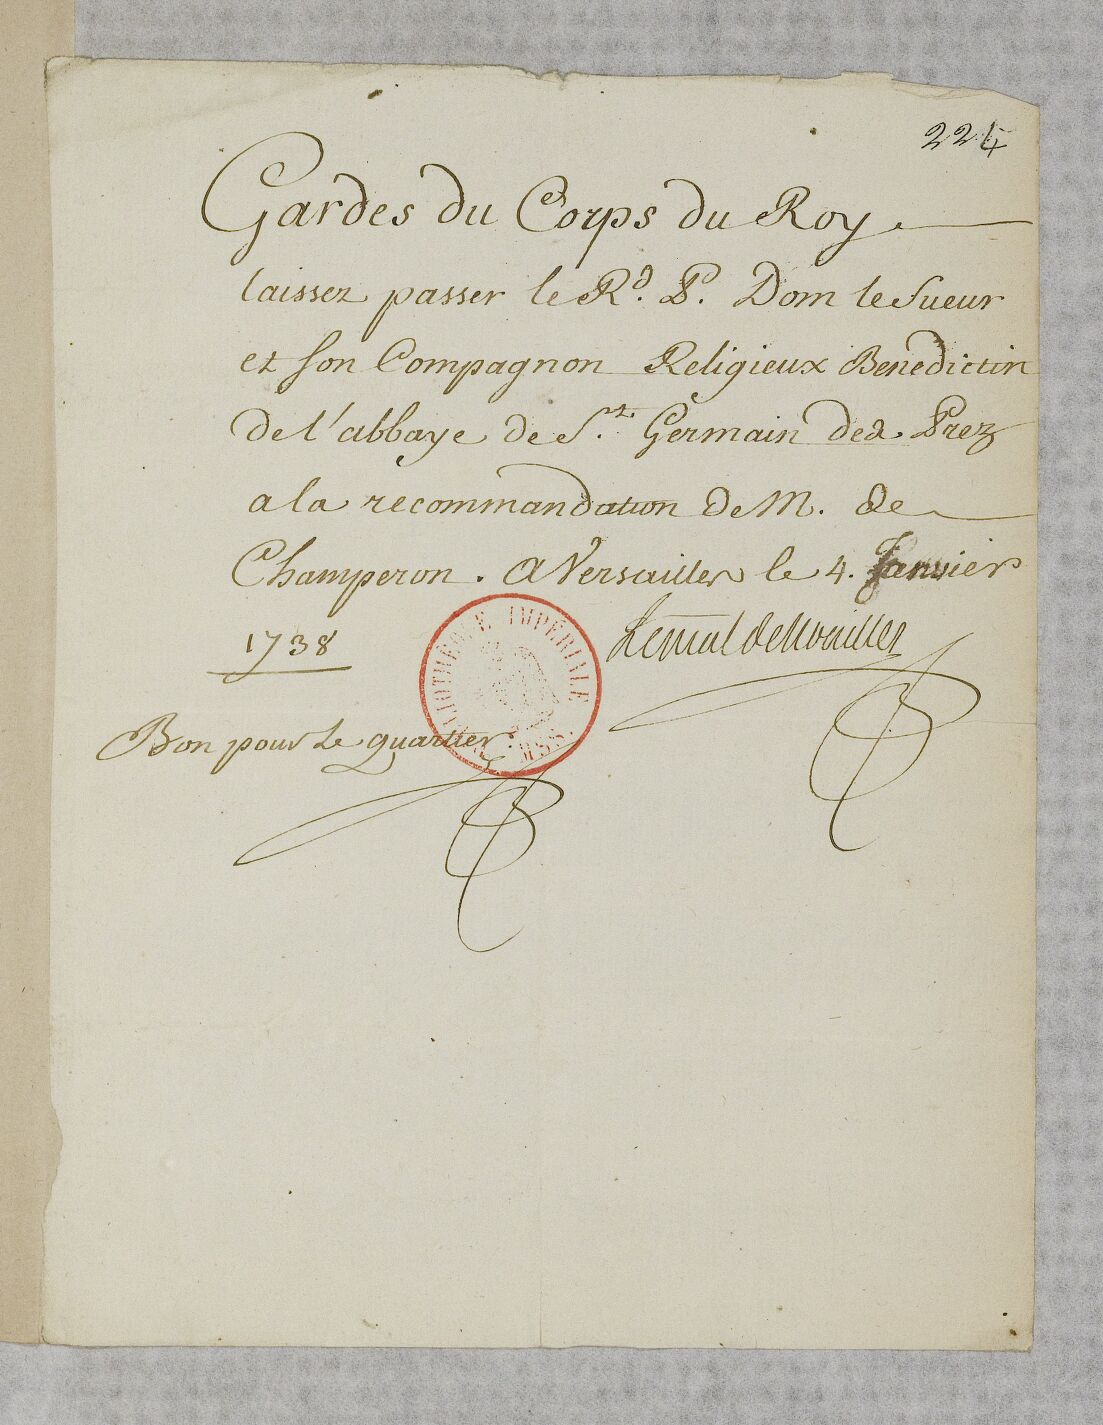 224
Gardes du Corps du Roy
laissez passer le Rd. P. Dom le Sueur
et son Compagnon Religieux Benedictin
de l'abbaye de St. Germain des Prez
a la recommandation de M. de
Champeron. A Versailles le 4. Janvier
1738
Le mal de Noailles
BIBLIOTHÈQUE IMPÉRIALE
MSS.
Bon pour le quartier